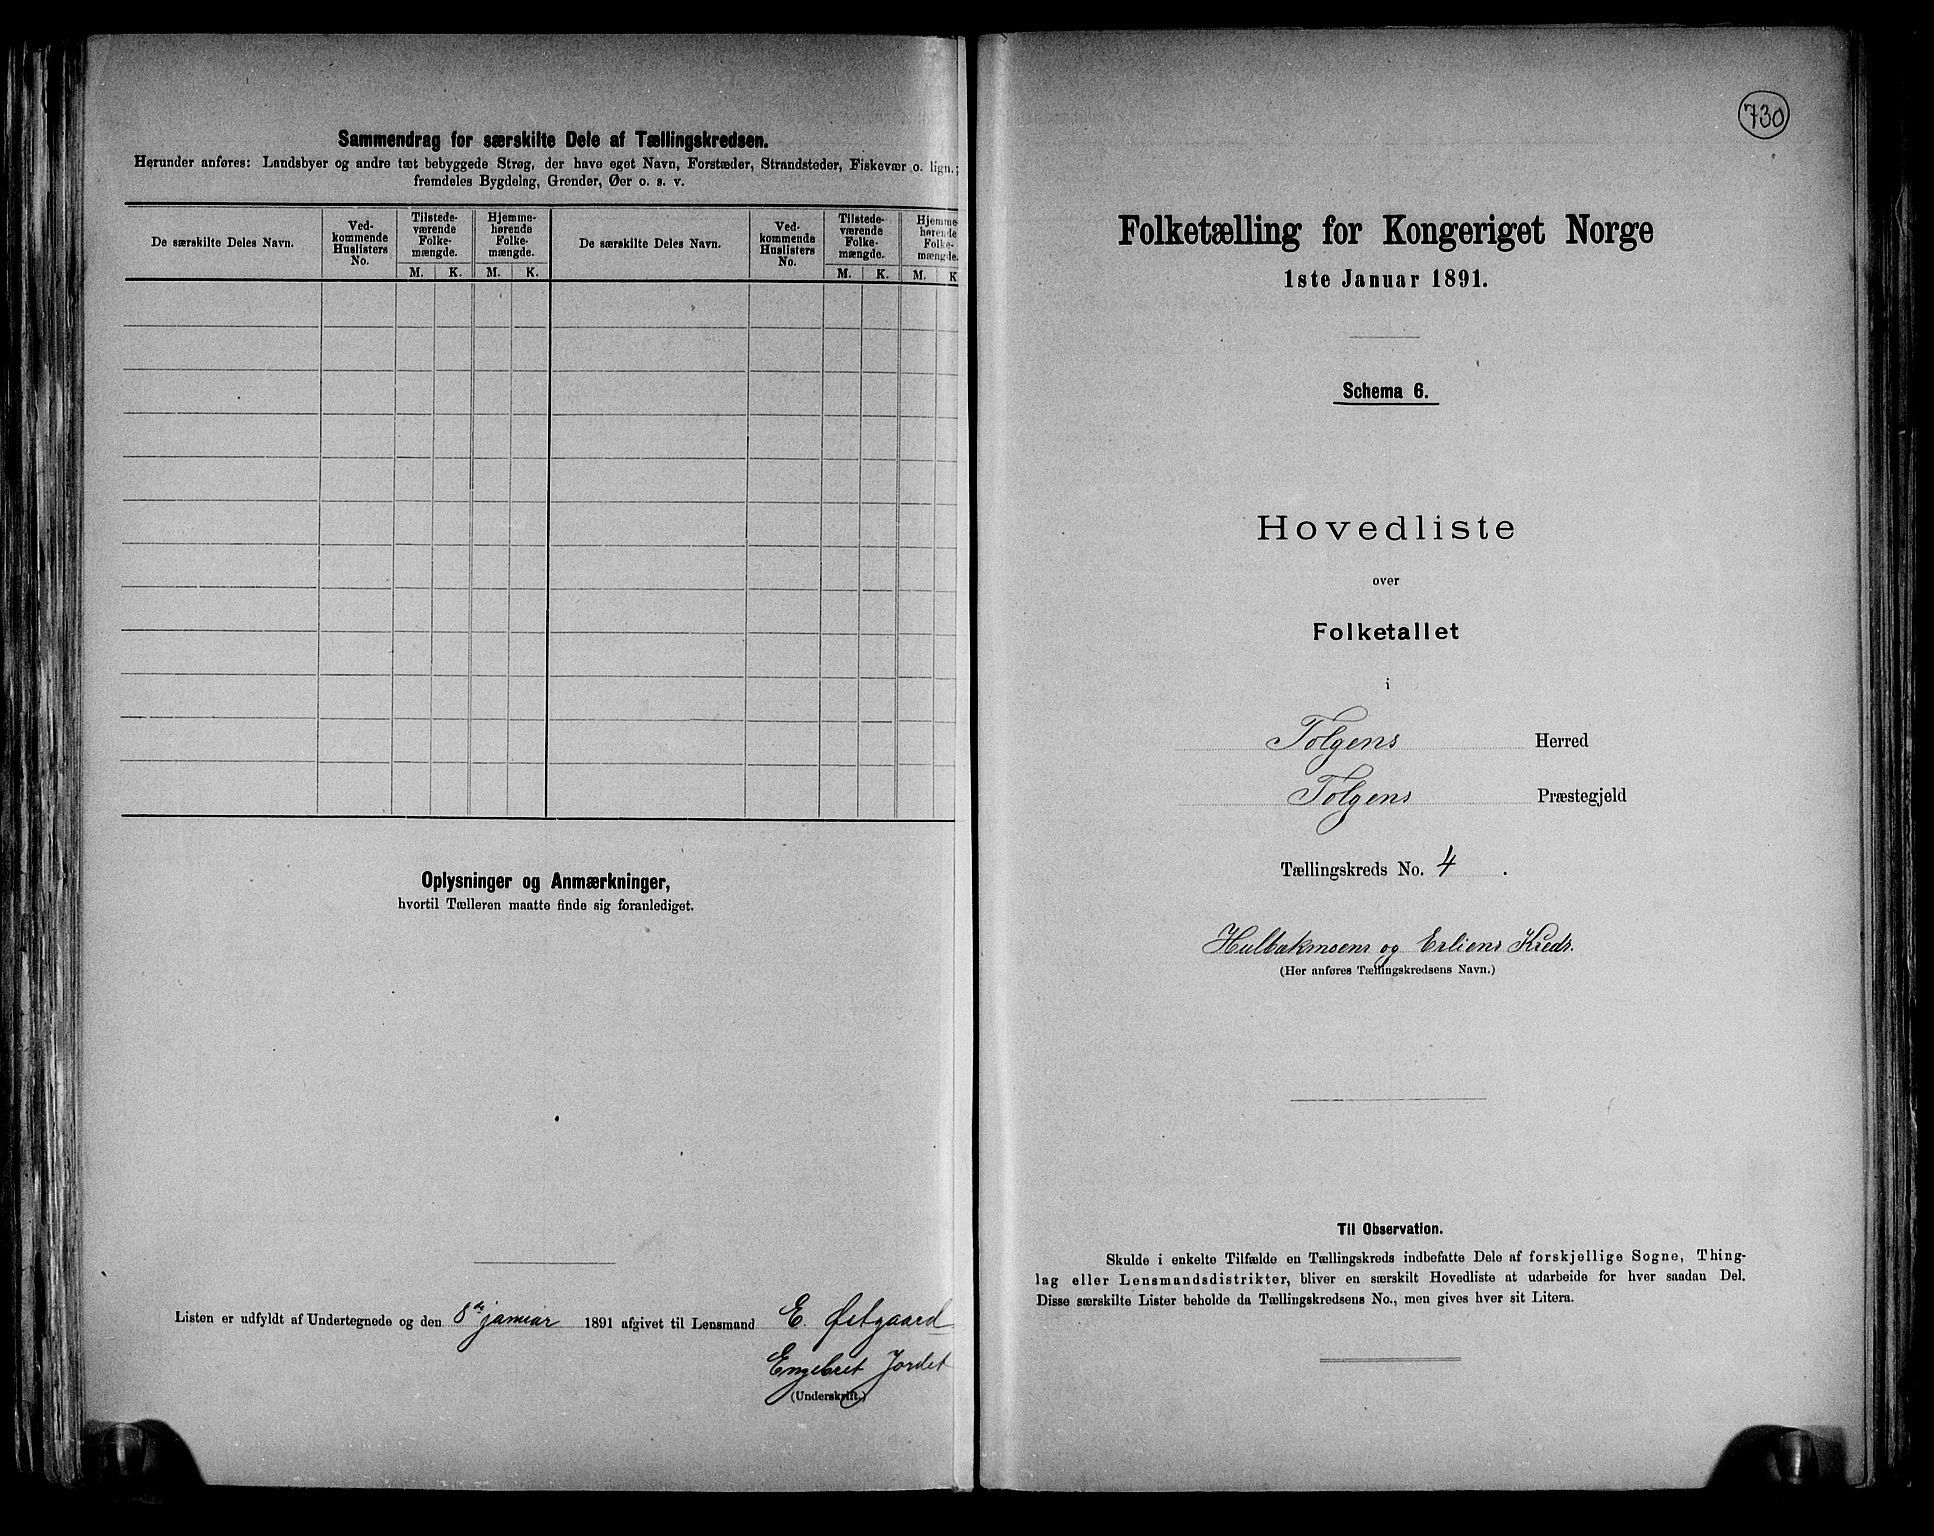 Sammendrag for særskilte Dele af Tællingskredsen.
Herunder anføres: Landsbyer og andre tæt bebyggede Strøg, der have eget Navn, Forstæder, Strandsteder, Fiskevær o. lign.;
fremdeles Bygdelag, Grender, Øer o. s. v.
De særskilte Deles Navn.
Ved-
kommende
Huslisters
No.
Tilstede-
værende
Folke-
mængde.
M. K.
Hjemme-
hørende
Folke-
mængde.
M. K.
De særskilte Deles Navn.
Ved-
kommende
Huslisters
No.
Tilstede-
værende
Folke-
mængde.
M. K.
Hjemme-
hørende
Folke-
mængde.
M. K
Oplysninger og Anmærkninger,
hvortil Tælleren maatte finde sig foranlediget.
Listen er udfyldt af Undertegnede og den 8de januar 1891 afgivet til Lensmand E. Østgaard
Engebret Jordet
(Underskrift.)
730
Folketælling for Kongeriget Norge
1ste Januar 1891.
Schema 6.
Hovedliste
over
Folketallet
i
Tolgens Herred
Tolgens Præstegjeld
Tællingskreds No. 4.
Hulbækmoens og Erliens Kreds.
(Her anføres Tællingskredsens Navn.)
Til Observation.
Skulde i enkelte Tilfælde en Tællingskreds indbefatte Dele af forskjellige Sogne, Thing-
lag eller Lensmandsdistrikter, bliver en særskilt Hovedliste at udarbeide for hver saadan Del.
Disse særskilte Lister beholde da Tællingskredsens No., men gives hver sit Litera.